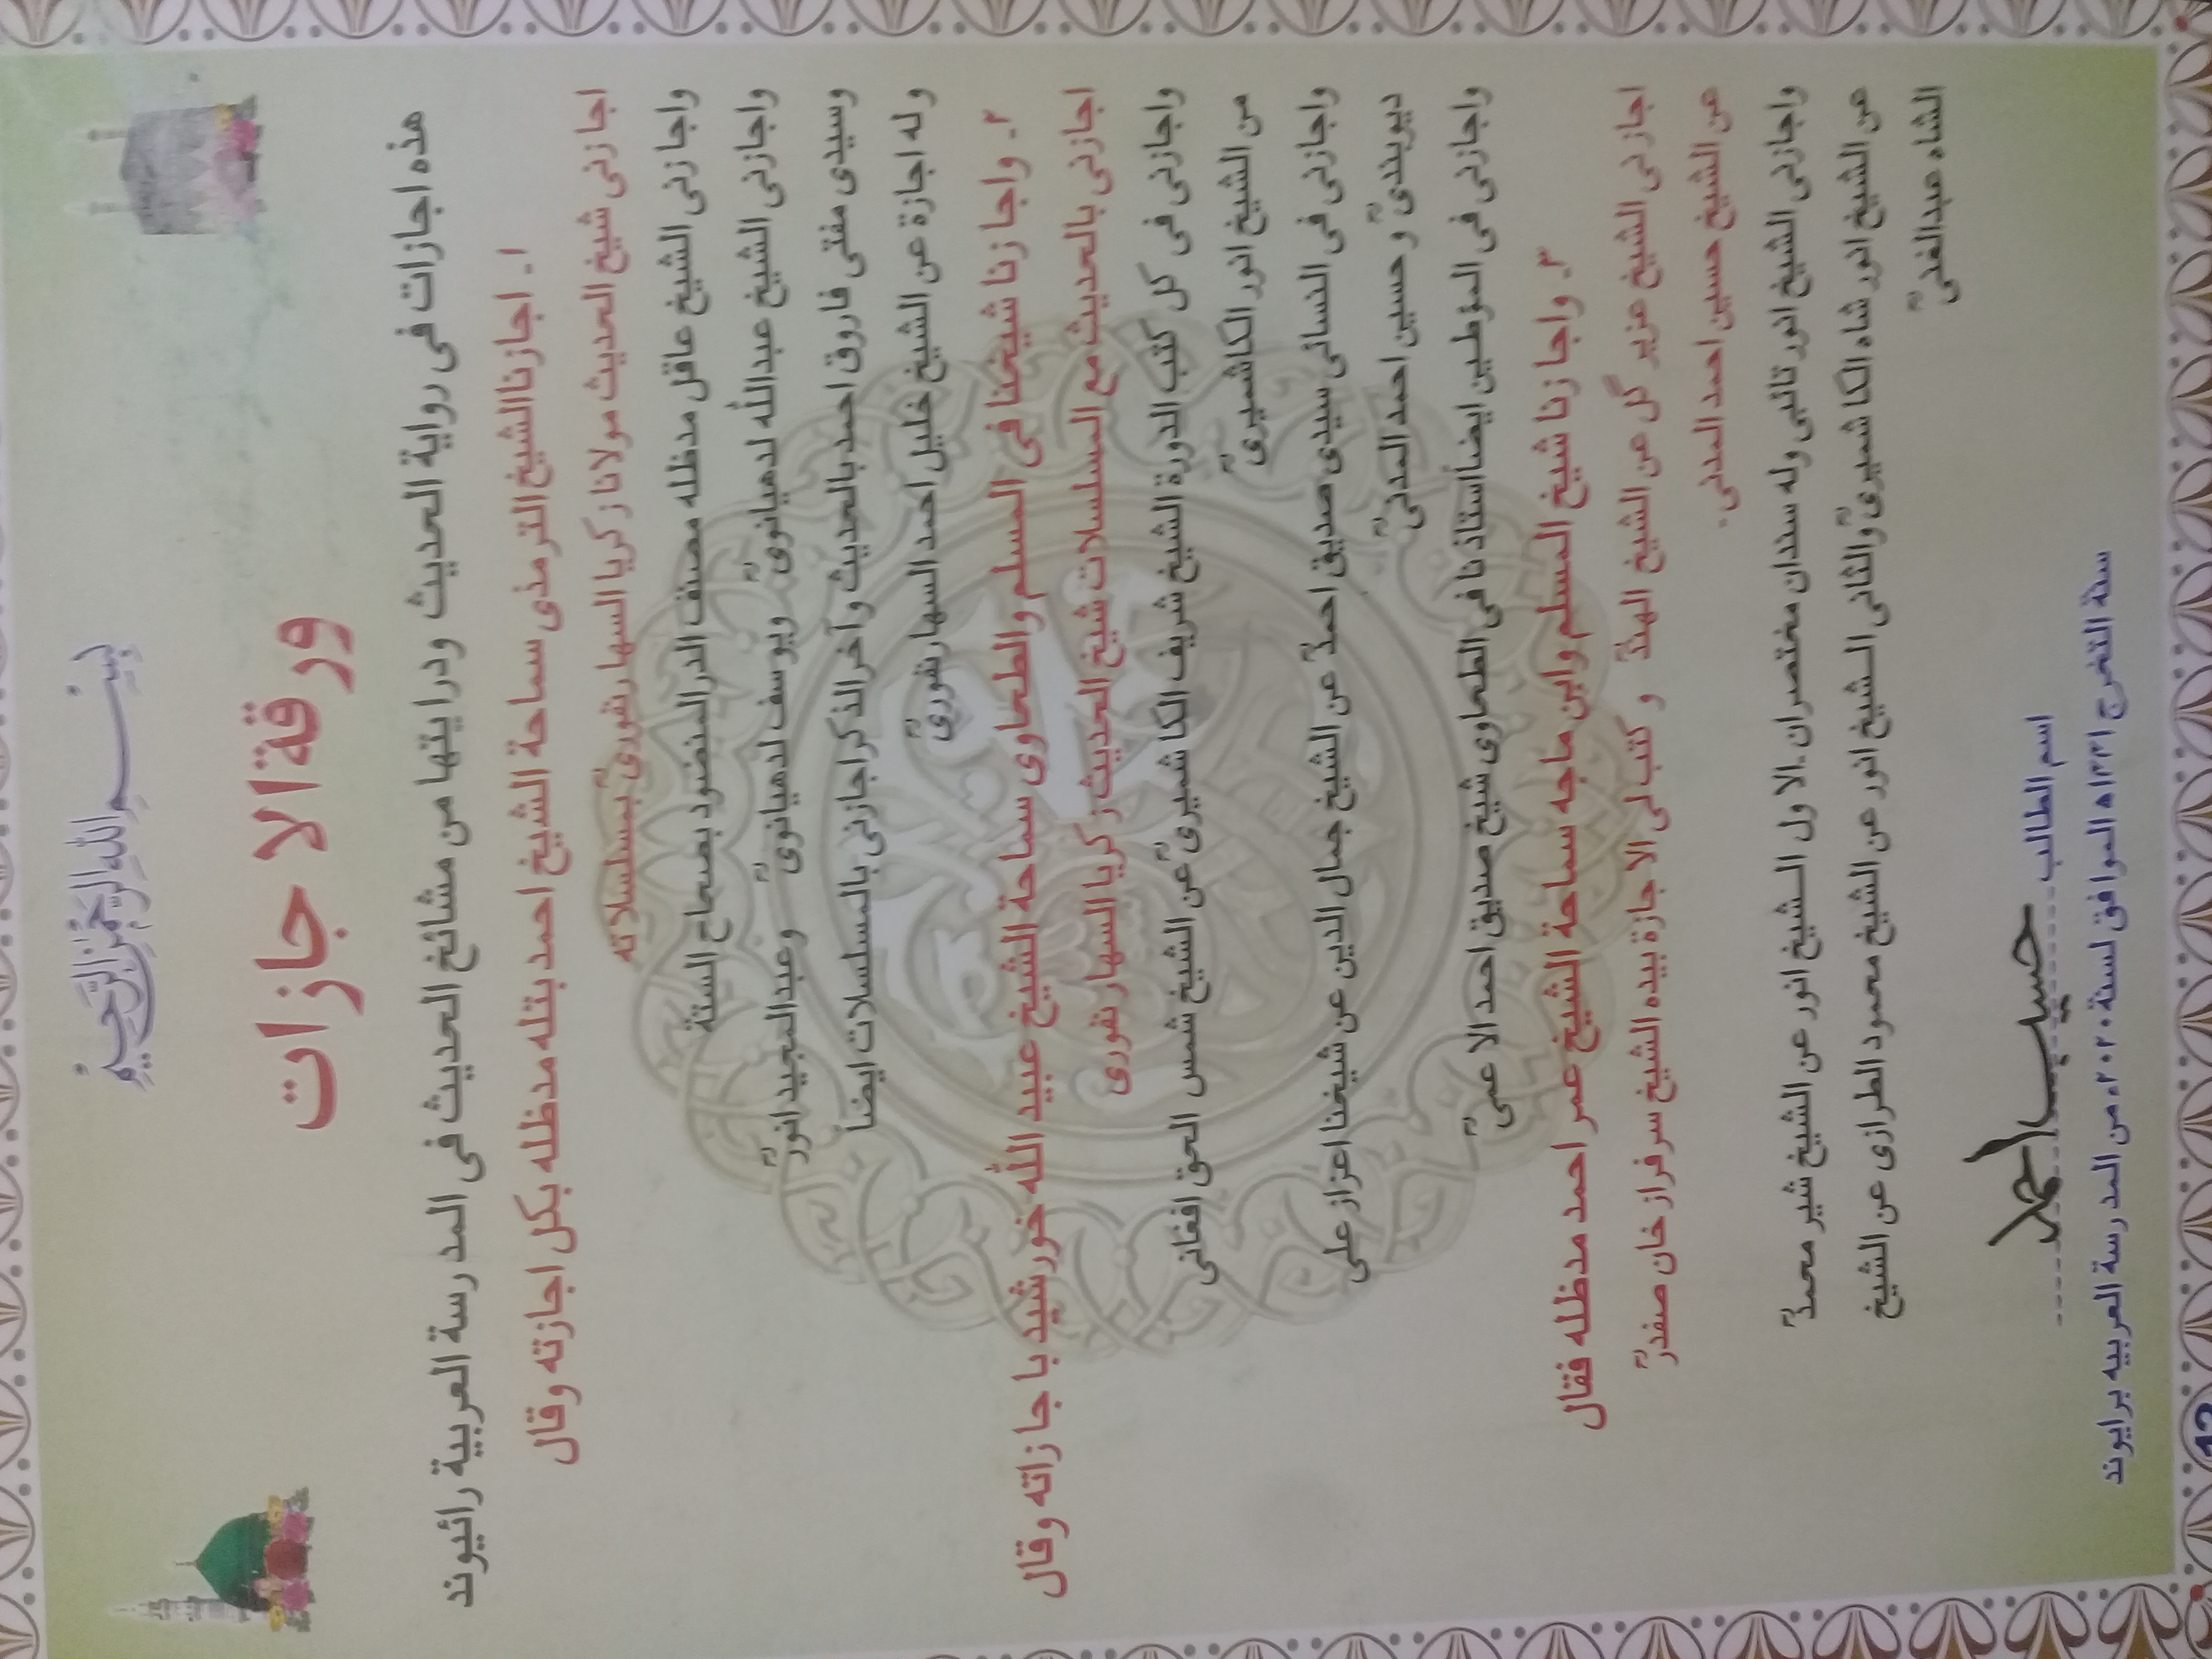 بِسْمِ اللّٰهِ الرَّحْمٰنِ الرَّحِیْمِ
ورقة الاجازات
هذه اجازات فی رواية الحديث ودرايتها من مشائخ الحديث فی المدرسة العربية رائيوند
۱۔ اجازنا الشيخ الترمذی سماحة الشيخ احمد بتله مدظله بكل اجازته وقال
اجازنی شيخ الحديث مولانا زكريا السهارنفوریؒ بمسلسلاته
واجازنی الشيخ عاقل مدظله مصنف الدر المنضود بصحاح الستة
واجازنی الشيخ عبدالله لدهیانویؒ ويوسف لدهیانویؒ وعبدالمجيد انورؒ
وسيدی مفتی فاروق احمد بالحديث وآخر الذكر اجازنی بالمسلسلات ايضاً
وله اجازة عن الشيخ خليل احمد السهارنفوریؒ
۲۔ واجازنا شيخنا فی المسلم والطحاوی سماحة الشيخ عبيد الله خورشيد باجازاته وقال
اجازنی بالحديث مع المسلسلات شيخ الحديث زكريا السهارنفوری
واجازنی فی كل كتب الدورة الشيخ شريف الكاشميریؒ عن الشيخ شمس الحق افغانی
من الشيخ انور الكاشميریؒ
واجازنی فی النسائی سيدی صديق احمدؒ عن الشيخ جمال الدين عن شيخنا اعزاز علی
ديوبندیؒ وحسين احمد المدنیؒ
واجازنی فی المؤطين ايضاً استاذنا فی الطحاوی شيخ صديق احمد الاعمیؒ
۳۔ واجازنا شيخ المسلم وابن ماجه سماحة الشيخ عمر احمد مدظله فقال
اجازنی الشيخ عزير گل عن الشيخ الهندؒ و كتب لی الاجازة بيده الشيخ سرفراز خان صفدرؒ
عن الشيخ حسين احمد المدنی۔
واجازنی الشيخ انور تالبی وله سندان مختصران۔ الاول الشيخ انور عن الشيخ شير محمدؒ
عن الشيخ انور شاه الكاشميریؒ والثانی الشيخ انور عن الشيخ محمود الطرازی عن الشيخ
الشاه عبدالغنیؒ
اسم الطالب حسیب احمد
سنة التخرج ۱۴۴۱ھ الموافق لسنة ۲۰۲۰ء من المدرسة العربيه برايوند